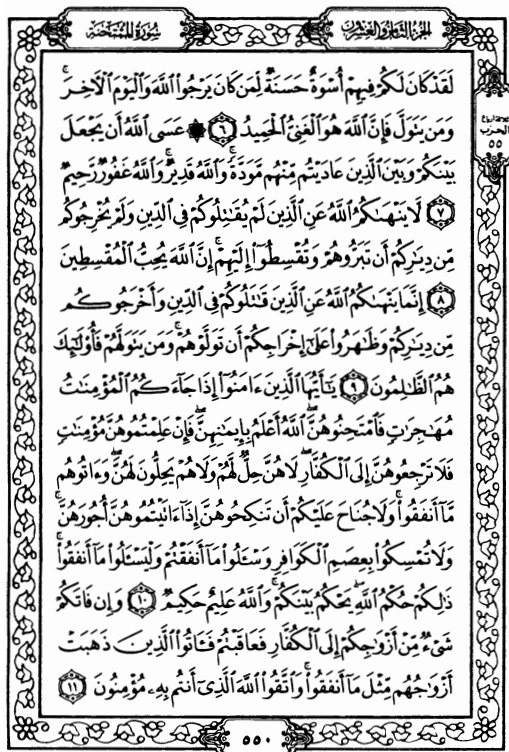 سُورَةُ المُمْتَحنَة الجُزْءُ الثَّامِنُ وَالعِشْرُونَ
لَقَدْ كَانَ لَكُمْ فِيهِمْ أُسْوَةٌ حَسَنَةٌ لِّمَن كَانَ يَرْجُوا۟ ٱللَّهَ وَٱلْيَوْمَ ٱلْءَاخِرَ ۚ
وَمَن يَتَوَلَّ فَإِنَّ ٱللَّهَ هُوَ ٱلْغَنِىُّ ٱلْحَمِيدُ ٦ ۞ عَسَى ٱللَّهُ أَن يَجْعَلَ
الحزب
٥٥
بَيْنَكُمْ وَبَيْنَ ٱلَّذِينَ عَادَيْتُم مِّنْهُم مَّوَدَّةً ۚ وَٱللَّهُ قَدِيرٌ ۚ وَٱللَّهُ غَفُورٌ رَّحِيمٌ
٧ لَّا يَنْهَىٰكُمُ ٱللَّهُ عَنِ ٱلَّذِينَ لَمْ يُقَٰتِلُوكُمْ فِى ٱلدِّينِ وَلَمْ يُخْرِجُوكُم
مِّن دِيَٰرِكُمْ أَن تَبَرُّوهُمْ وَتُقْسِطُوٓا۟ إِلَيْهِمْ ۚ إِنَّ ٱللَّهَ يُحِبُّ ٱلْمُقْسِطِينَ
٨ إِنَّمَا يَنْهَىٰكُمُ ٱللَّهُ عَنِ ٱلَّذِينَ قَٰتَلُوكُمْ فِى ٱلدِّينِ وَأَخْرَجُوكُم
مِّن دِيَٰرِكُمْ وَظَٰهَرُوا۟ عَلَىٰٓ إِخْرَاجِكُمْ أَن تَوَلَّوْهُمْ ۚ وَمَن يَتَوَلَّهُمْ فَأُو۟لَٰٓئِكَ
هُمُ ٱلظَّٰلِمُونَ ٩ يَٰٓأَيُّهَا ٱلَّذِينَ ءَامَنُوٓا۟ إِذَا جَآءَكُمُ ٱلْمُؤْمِنَٰتُ
مُهَٰجِرَٰتٍ فَٱمْتَحِنُوهُنَّ ۖ ٱللَّهُ أَعْلَمُ بِإِيمَٰنِهِنَّ ۖ فَإِنْ عَلِمْتُمُوهُنَّ مُؤْمِنَٰتٍ
فَلَا تَرْجِعُوهُنَّ إِلَى ٱلْكُفَّارِ ۖ لَا هُنَّ حِلٌّ لَّهُمْ وَلَا هُمْ يَحِلُّونَ لَهُنَّ ۖ وَءَاتُوهُم
مَّآ أَنفَقُوا۟ ۚ وَلَا جُنَاحَ عَلَيْكُمْ أَن تَنكِحُوهُنَّ إِذَآ ءَاتَيْتُمُوهُنَّ أُجُورَهُنَّ ۚ
وَلَا تُمْسِكُوا۟ بِعِصَمِ ٱلْكَوَافِرِ وَسْـَٔلُوا۟ مَآ أَنفَقْتُمْ وَلْيَسْـَٔلُوا۟ مَآ أَنفَقُوا۟ ۚ
ذَٰلِكُمْ حُكْمُ ٱللَّهِ ۖ يَحْكُمُ بَيْنَكُمْ ۚ وَٱللَّهُ عَلِيمٌ حَكِيمٌ ١٠ وَإِن فَاتَكُمْ
شَىْءٌ مِّنْ أَزْوَٰجِكُمْ إِلَى ٱلْكُفَّارِ فَعَاقَبْتُمْ فَـَٔاتُوا۟ ٱلَّذِينَ ذَهَبَتْ
أَزْوَٰجُهُم مِّثْلَ مَآ أَنفَقُوا۟ ۚ وَٱتَّقُوا۟ ٱللَّهَ ٱلَّذِىٓ أَنتُم بِهِۦ مُؤْمِنُونَ ١١
٥٥٠